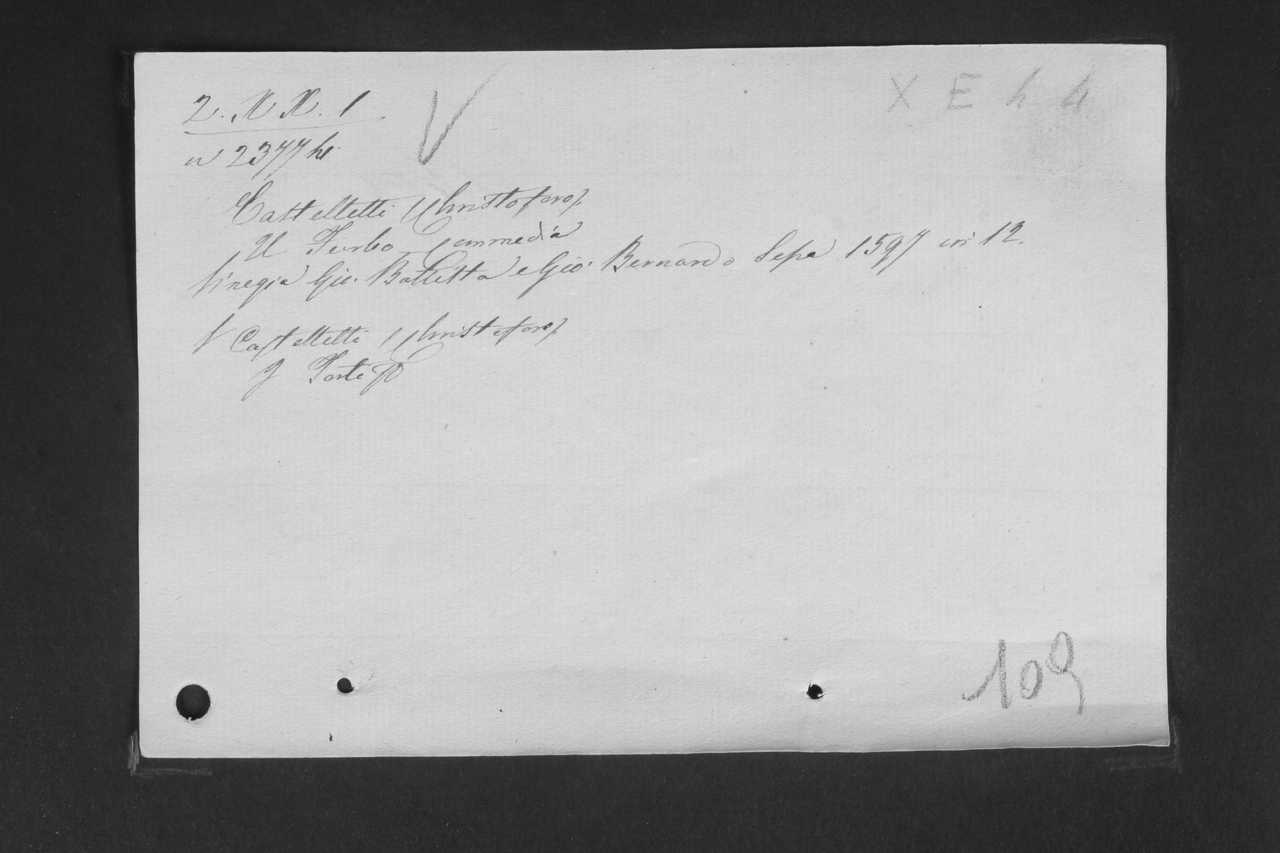 2. X X. 1
X E h h
2377
Castelletti (Christoforo).
Il Furbo Commedia
Vinegia Gio. Battista e Gio. Bernardo Sessa 1597 in 12.
Castelletti (Christoforo).
109